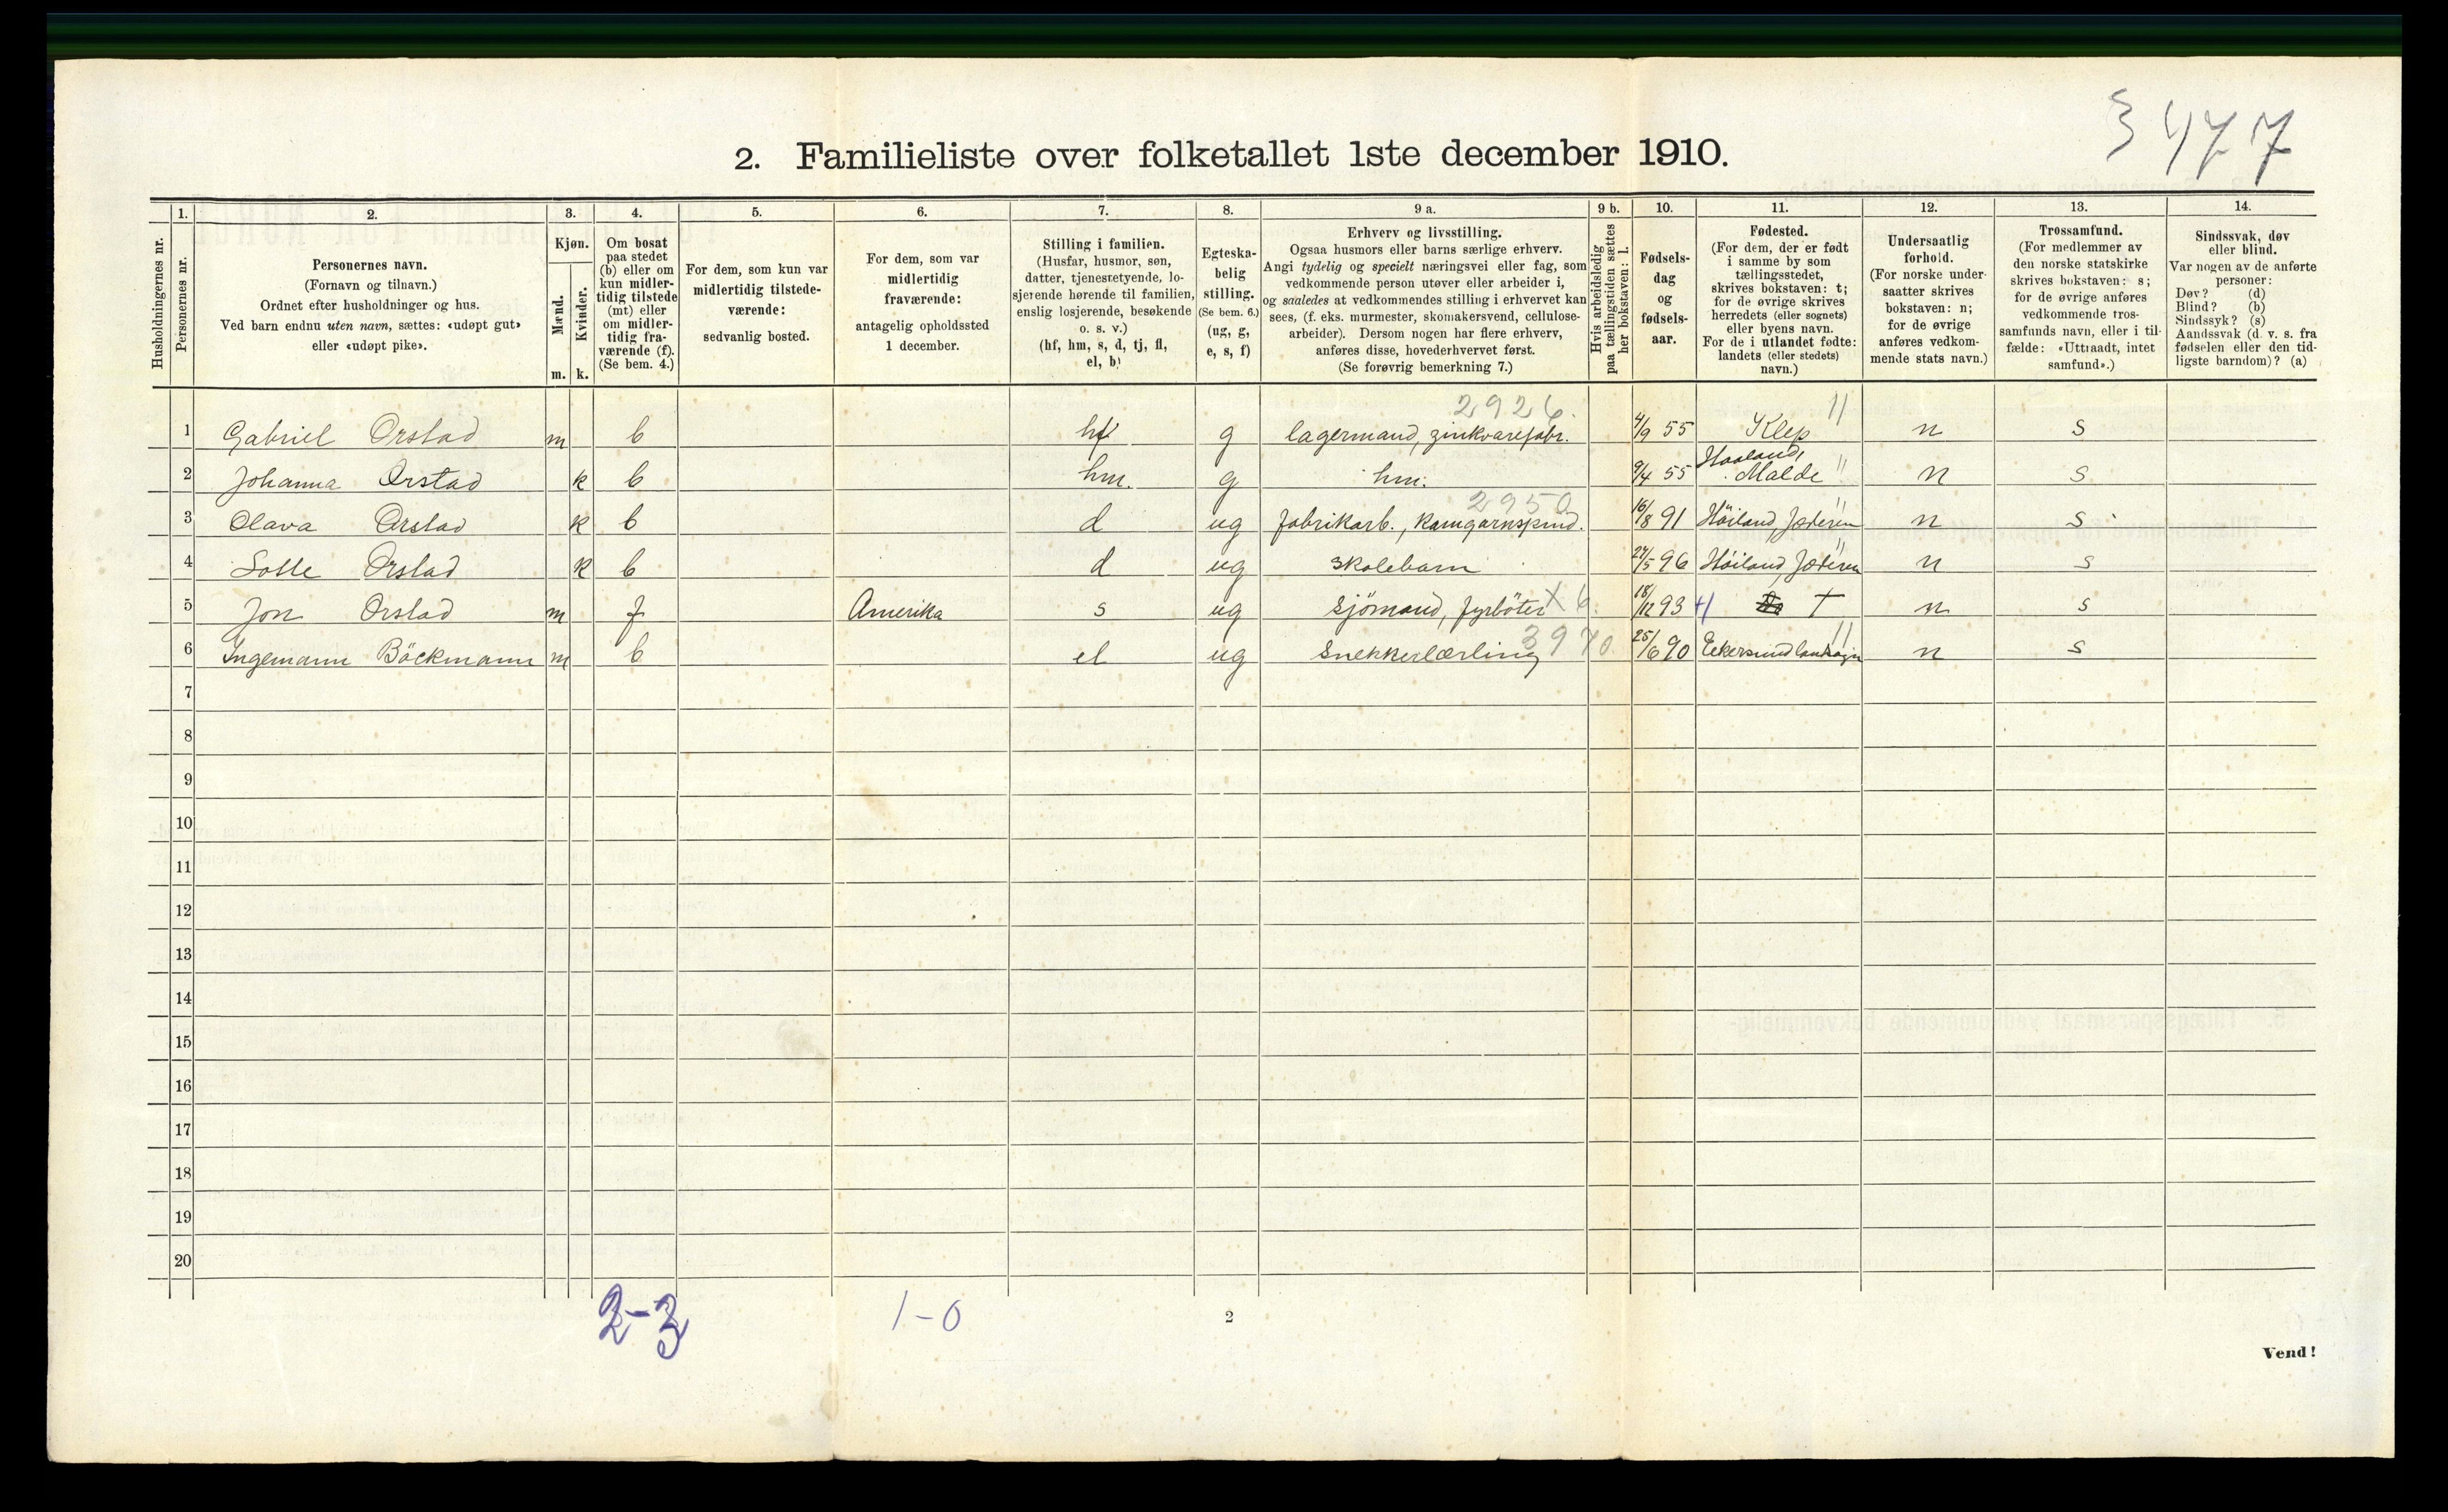 3477
2. Familieliste over folketallet 1ste december 1910.
Husholdningernes nr.
1. Personernes nr.
2. Personernes navn.
(Fornavn og tilnavn.)
Ordnet efter husholdninger og hus.
Ved barn endnu uten navn, sættes: «udøpt gut»
eller «udøpt pike».
3. Kjøn.
Mænd. m.
Kvinder. k.
4. Om bosat
paa stedet
(b) eller om
kun midler-
tidig tilstede
(mt) eller
om midler-
tidig fra-
værende (f).
(Se bem. 4.)
5. For dem, som kun var
midlertidig tilstede-
værende:
sedvanlig bosted.
6. For dem, som var
midlertidig
fraværende:
antagelig opholdssted
1 december.
7. Stilling i familien.
(Husfar, husmor, søn,
datter, tjenestetyende, lo-
sjerende hørende til familien,
enslig losjerende, besøkende
o. s. v.)
(hf, hm, s, d, tj, fl,
el, b)
8. Egteska-
belig
stilling.
(Se bem. 6.)
(ug, g,
e, s, f)
9 a. Erhverv og livsstilling.
Ogsaa husmors eller barns særlige erhverv.
Angi tydelig og specielt næringsvei eller fag, som
vedkommende person utøver eller arbeider i,
og saaledes at vedkommendes stilling i erhvervet kan
sees, (f. eks. murmester, skomakersvend, cellulose-
arbeider). Dersom nogen har flere erhverv,
anføres disse, hovederhvervet først.
(Se forøvrig bemerkning 7.)
9 b. Hvis arbeidsledig
paa tællingstiden sættes
her bokstaven: l.
10. Fødsels-
dag
og
fødsels-
aar.
11. Fødested.
(For dem, der er født
i samme by som
tællingsstedet,
skrives bokstaven: t;
for de øvrige skrives
herredets (eller sognets)
eller byens navn.
For de i utlandet fødte:
landets (eller stedets)
navn.)
12. Undersaatlig
forhold.
(For norske under-
saatter skrives
bokstaven: n;
for de øvrige
anføres vedkom-
mende stats navn.)
13. Trossamfund.
(For medlemmer av
den norske statskirke
skrives bokstaven: s;
for de øvrige anføres
vedkommende tros-
samfunds navn, eller i til-
fælde: «Uttraadt, intet
samfund».)
14. Sindssvak, døv
eller blind.
Var nogen av de anførte
personer:
Døv? (d)
Blind? (b)
Sindssyk? (s)
Aandssvak (d. v. s. fra
fødselen eller den tid-
ligste barndom)? (a)
2926. 11
1 Gabriel Orstad m b hf g lagermand, zinkvarefabr. 4/9 55 Klep n s
2 Johanna Orstad k b hm. g hm. 9/4 55 Haaland, Malde " n s
2950
3 Olava Orstad k b d ug fabrikarb., kamgarnspind. 16/8 91 Höiland, Jæderen " n s
4 Lotte Orstad k b d ug skolebarn 27/5 96 Höiland, Jæderen " n s
5 Jon Orstad m f Amerika s ug Sjömand, fyrböter X 6. 18/12 93 t n s
6 Ingemann Böckmann m b el ug Snekkerlærling 3970. 25/6 90 Eekersund landsogn 11 n s
7
8
9
10
11
12
13
14
15
16
17
18
19
20
2-3 1-0
2
Vend!